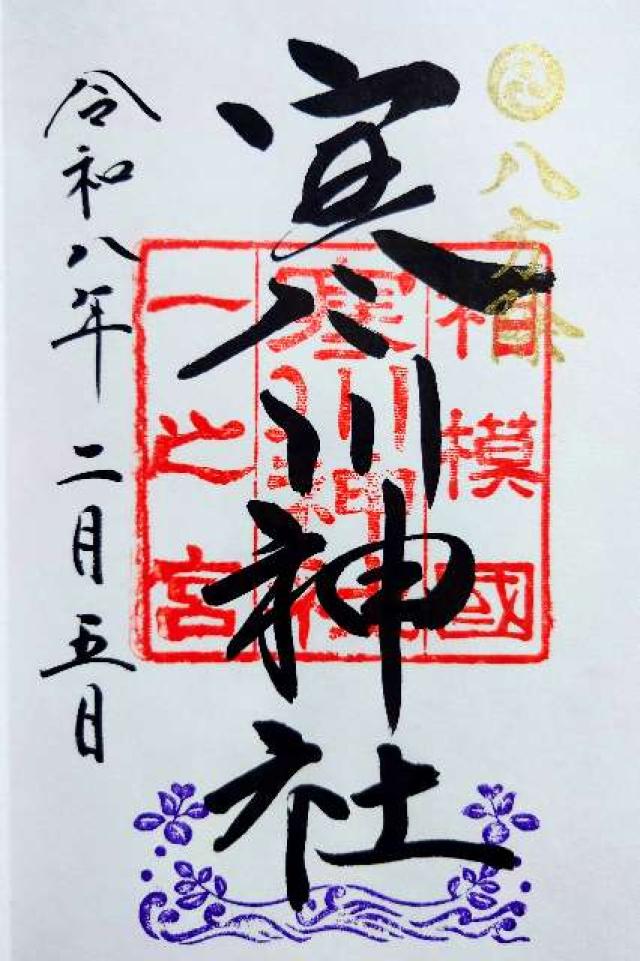 八方除
相模國
寒川神社
一之宮
寒川神社
令和八年二月五日